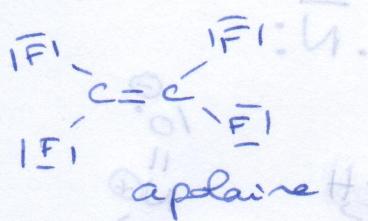 |F| |F|
C=C
|F| F|
apolaire